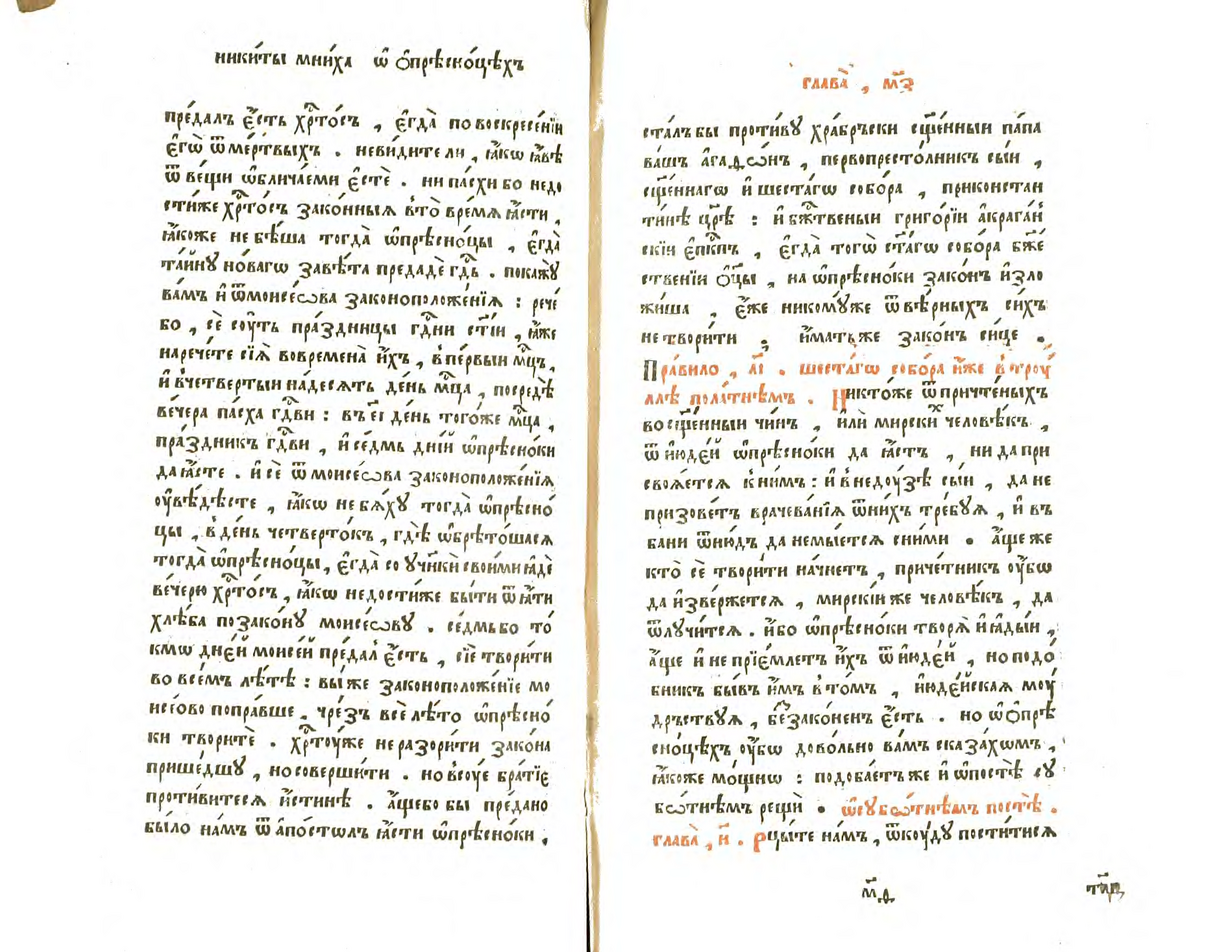 никиты мниха ѿ ѻпрѣсноцѣхъ
пре́далъ є҆́сть хрⷭ҇то́съ , є҆гда̀ повоскресе́нїи
є҆гѡ̀ ѿме́ртвыхъ . невидите ли , ꙗ҆́кѡ ꙗ҆́вѣ
ѿ вещи ѡ҆блича́еми є҆стѐ . ни па́схи бо недо
сти́же хрⷭ҇то́съ зако́нныѧ в̾то̀ вре́мѧ ꙗ҆́сти ,
ꙗ҆́коже не бѣ́ша тогда̀ ѡ҆прѣсно́цы , є҆гда̀
та́йнѹ но́вагѡ завѣ́та предадѐ гдⷭ҇ь . покажѹ̀
ва́мъ и҆ ѿмоисе́ѡва законоположе́нїѧ : рече́
бо , сѐ сѹ́ть пра́здницы гдⷭ҇ни ст҃і́и , ꙗ҆́же
нарече́те сїѧ̀ вовремена̀ и҆́хъ , в̾пе́рвыи мцⷭ҇ъ ,
и҆ в̾четве́ртыи на́десѧть де́нь мцⷭ҇а , посредѣ̀
ве́чера па́сха гдⷭ҇ви : въ є҃і де́нь того́же мцⷭ҇а ,
пра́здникъ гдⷭ҇ви , и҆ се́дмь дні́й ѡ҆прѣсно́ки
да ꙗ҆́сте . и҆ сѐ ѿ моисе́ѡва законоположе́нїѧ
ѹ҆вѣ́дѣсте , ꙗ҆́кѡ не бѧ́хѹ тогда̀ ѡ҆прѣсно́
цы , в̾ де́нь четверто́къ , гдѣ̀ ѡ҆брѣто́шасѧ
тогда̀ ѡ҆прѣсно́цы , є҆гда̀ со ѹ҆чн҃ки̑ свои́ми ꙗ҆дѐ
вече́рю хрⷭ҇то́съ , ꙗ҆́кѡ недости́же бы́ти ѿ ꙗ҆́сти
хлѣ́ба по зако́нѹ моисе́ѡвѹ . се́дмь бо то́
кмѡ дне́й моисе́й преда́л є҆́сть , сїѐ твори́ти
во все́мъ лѣ́тѣ : вы́ же законоположе́нїе мо
исе́ово попра́вше , чре́зъ всѐ лѣ́то ѡ҆прѣсно́
ки творитѐ . хрⷭ҇тѹ́же не разори́ти зако́на
прише́дшѹ , но соверши́ти . но всѹ́е бра́тїе
проти́витесѧ и҆́стинѣ . а҆́ще бо бы пре́дано
бы́ло на́мъ ѿ а҆по́столъ ꙗ҆́сти ѡ҆прѣсно́ки ,
глава̀ , м҃з
ста́лъ бы проти́вѹ хра́брьски сщ҃е́нныи па́па
ва́шъ а҆гаѳѡ́нъ , первопресто́лникъ сы́и ,
сщ҃е́ннагѡ и҆ шеста́гѡ собо́ра , приконстан
ти́нѣ цр҃ѣ̀ : и҆ бжⷭ҇твеныи григо́рїи а҆крага́н
скїи є҆пⷭ҇кпъ , є҆гда̀ тогѡ̀ ст҃а́гѡ собо́ра бж҃е
ственїи ѻ҆ц҃ы̀ , на ѡ҆прѣсно́ки зако́нъ и҆зло
жи́ша , є҆́же никомѹ́же ѿ вѣ́рныхъ си́хъ
не твори́ти ; и҆́мать же зако́н си́це .
Пра́вило , а҃і . шеста́гѡ собо́ра и҆́же в̾ трѹ́
ллѣ пола́тнѣмъ . Никто́же ѿ причте́ныхъ
во сщ҃е́нныи чи́нъ , и҆лѝ мирски́х человѣ́къ ,
ѿ і҆юде́й ѡ҆прѣсно́ки да ꙗ҆́стъ , ни да при
своѧ́етсѧ к̾ ни́мъ : и҆ в̾ недѹ́зѣ сы́и , да не
призове́тъ врачева́нїѧ ѿни́хъ тре́бѹѧ , и҆ въ
ба́ни ѿню́дъ да немы́етсѧ сни́ми . а҆́ще же
кто̀ сѐ твори́ти начне́тъ , приче́тникъ ѹ҆́бѡ
да и҆зве́ржетсѧ , мирскі́и же человѣ́къ , да
ѿлѹчи́тсѧ . и҆́бо ѡ҆прѣсно́ки творѧ̀ и҆ ꙗ҆ды́и ,
а҆́ще и҆ не прїе́млетъ и҆́хъ ѿ і҆юде́й , но подо́
бникъ бы́въ и҆̀мъ в̾ то́мъ , і҆юде́йскаѧ мѹ́
дрьствѹѧ , беззако́ненъ є҆́сть . но ѡ҆ ѻ҆прѣ
сно́цѣхъ ѹ҆́бѡ дово́льно ва́мъ сказа́хомъ ,
ꙗ҆́коже мо́щнѡ : подоба́етъ же и҆ ѡ҆ по́стѣ сѹ
бѡ́тнѣмъ рещѝ . ѡ҆ сѹбѡ́тнѣмъ по́стѣ .
глава̀ , и҃ . рцы́те на́мъ , ѿкѹ́дѹ пости́тисѧ
м҃д